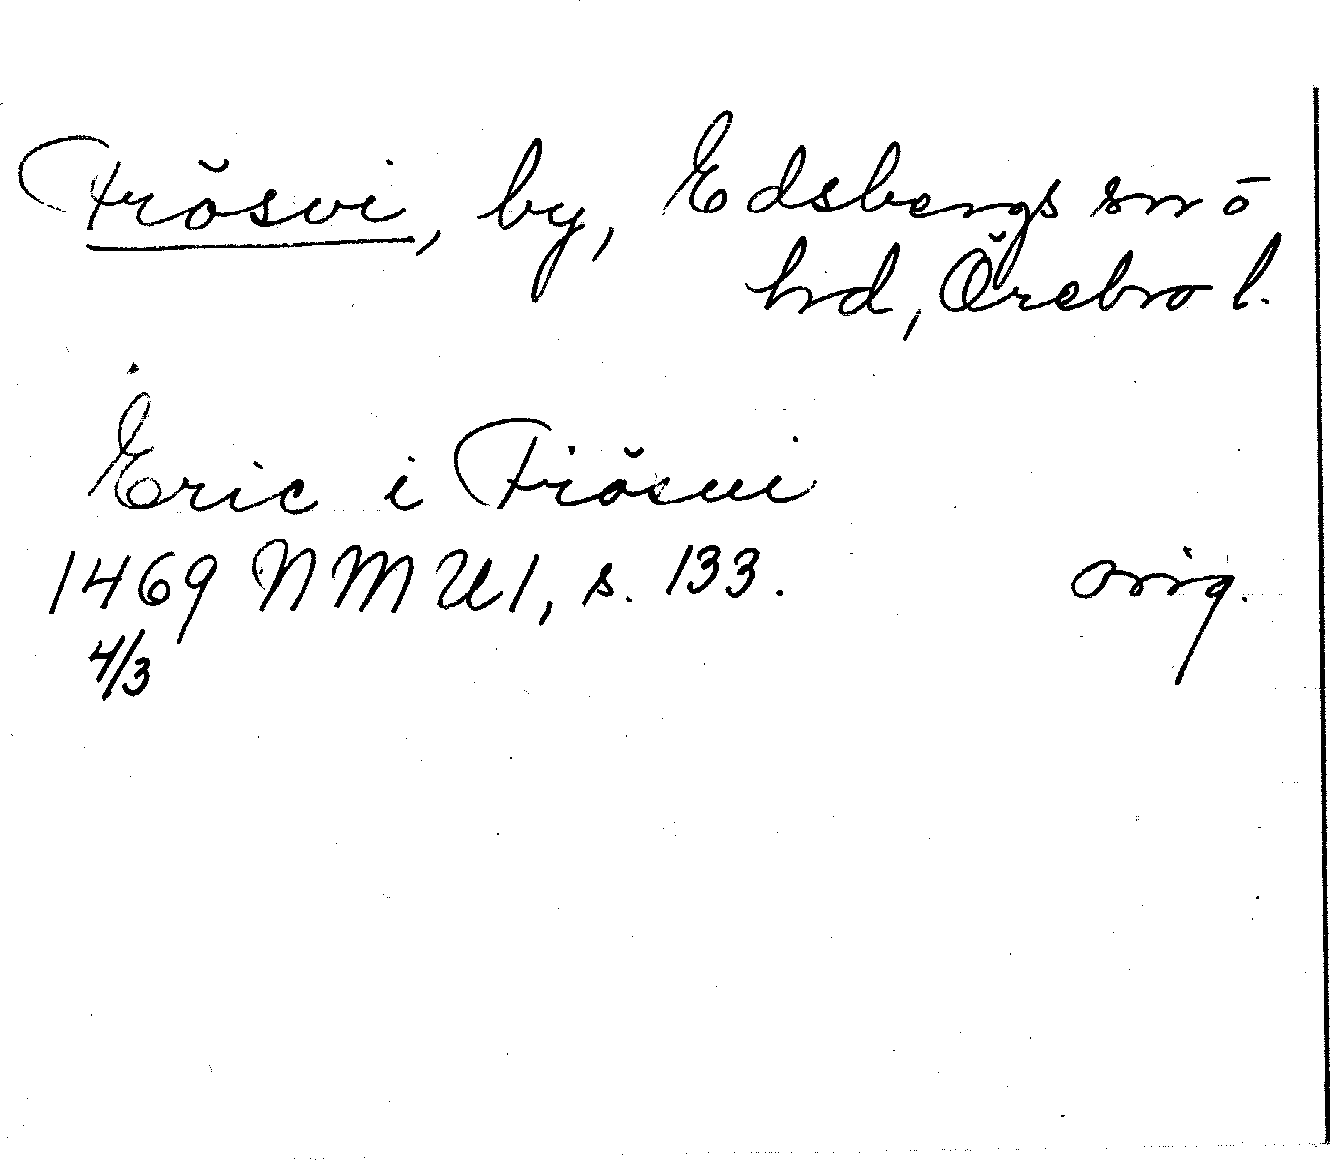 Frösvi, by, Edsbergs sn o
hd, Örebro l.
Eric i Frösui
1469 NMU1, s. 133. orig.
4/3